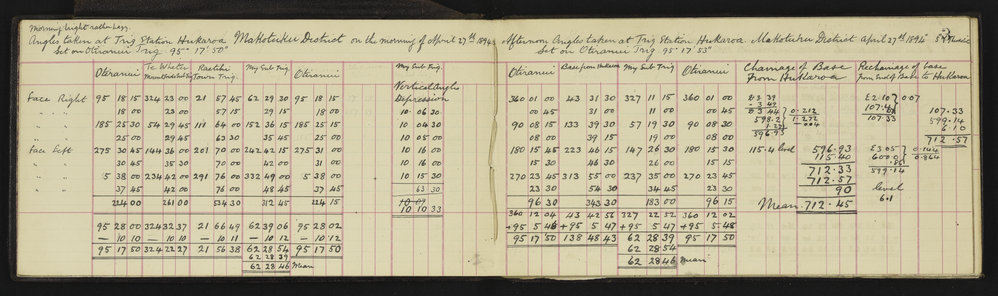 Morning light rather hazy.
Angles taken at Trig Station Hukaroa Makotuku District on the morning of April 27th 1894
Set on Otiranui Trig 95° 17' 50"
Otiranui Te Wheter Raetihi My Sub Trig Otiranui My Sub Trig.
Town Trig. Vertical Angle
Face Right 95 18 15 324 23 00 21 57 45 62 29 30 95 18 15 Depression
" " " 18 00 23 00 57 15 29 15 18 00 10 06 30
" " " 185 25 30 54 29 45 111 64 00 152 36 15 185 25 15 10 04 30
" " " 25 00 29 45 63 30 35 45 25 00 10 05 00
Face Left 275 30 45 144 36 00 201 70 00 242 42 15 275 31 00 10 16 00
" " " 30 45 35 30 70 00 42 00 31 00 10 16 00
" " " 5 38 00 234 42 00 291 76 00 332 49 00 5 38 00 10 15 30
" " " 37 45 42 00 76 00 48 45 37 45 63 30
224 00 261 00 534 30 312 45 224 15 10 09
10 10 33
95 28 00 324 32 37 21 66 49 62 39 06 95 28 02
— 10 10 — 10 10 — 10 11 — 10 12 — 10 12
95 17 50 324 22 27 21 56 38 62 28 54 95 17 50
62 28 39
62 28 46 Mean
Afternoon Angles taken at Trig Station Hukaroa Makotuku District April 27th 1894
Set on Otiranui Trig 95° 17' 53"
Otiranui Base from Hukaroa My Sub Trig Otiranui Chainage of Base from Hukaroa Rechainage of base from End of Base to Hukaroa
360 01 00 43 31 30 327 11 15 360 01 00
00 45 31 00 11 00 00 45
90 08 15 133 39 30 57 19 30 90 08 30
08 00 39 15 19 00 08 00
180 15 45 223 46 15 147 26 30 180 15 30
15 30 46 30 26 00 15 15
270 23 45 313 55 00 237 35 00 270 23 45
23 30 54 30 34 45 23 30
96 30 343 30 183 00 96 15
360 12 04 43 42 56 327 22 52 360 12 02
+95 5 46 +95 5 47 +95 5 47 +95 5 48
95 17 50 138 48 43 62 28 39 95 17 50
62 28 54
62 28 46 Mean
83.39
.212
598.2
1.272
.004
596.93
115.4 level
596.93
115.40
712.33
712.57
90
Mean 712.45
E2.10 0.07
107.33
107.33
599.14
6.10
712.57
E3.05 0.144
600.0 0.864
599.14
level
6.1